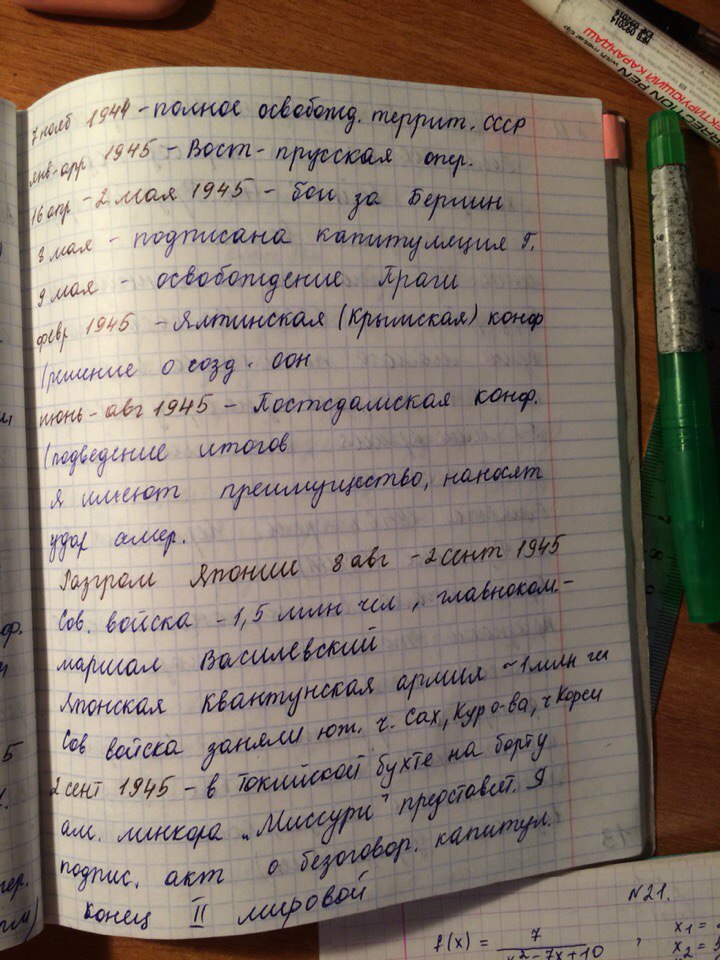 7 нояб 1944 - полное освобожд. террит. СССР
янв-апр 1945 - Вост-прусская опер.
16 апр - 2 мая 1945 - бои за Берлин
8 мая - подписана капитуляция Г.
9 мая - освобождение Праги
февр 1945 - Ялтинская (Крымская) конф
(решение о созд. оон
июнь-авг 1945 - Постсдамская конф.
(подведение итогов
Я имеют преимущество, наносят
удар амер.
Разгром Японии 8 авг - 2 сент 1945
Сов. войска - 1,5 млн чел, главноком. -
маршал Василевский
Японская Квантунская армия ~ 1 млн чел
Сов войска заняли юж. ч. Сах, Кур о-ва, ч Кореи
2 сент 1945 - в Токийской бухте на борту
ам. линкора "Миссури" представит. Я
подпис. акт о безоговор. капитул.
конец II мировой
RRECTION PEN
with metal tip
КТИРУЮЩИЙ КАРАНДАШ
N21.
f(x) = 7 / x²-7x+10
x₁ =
x₂ =
13